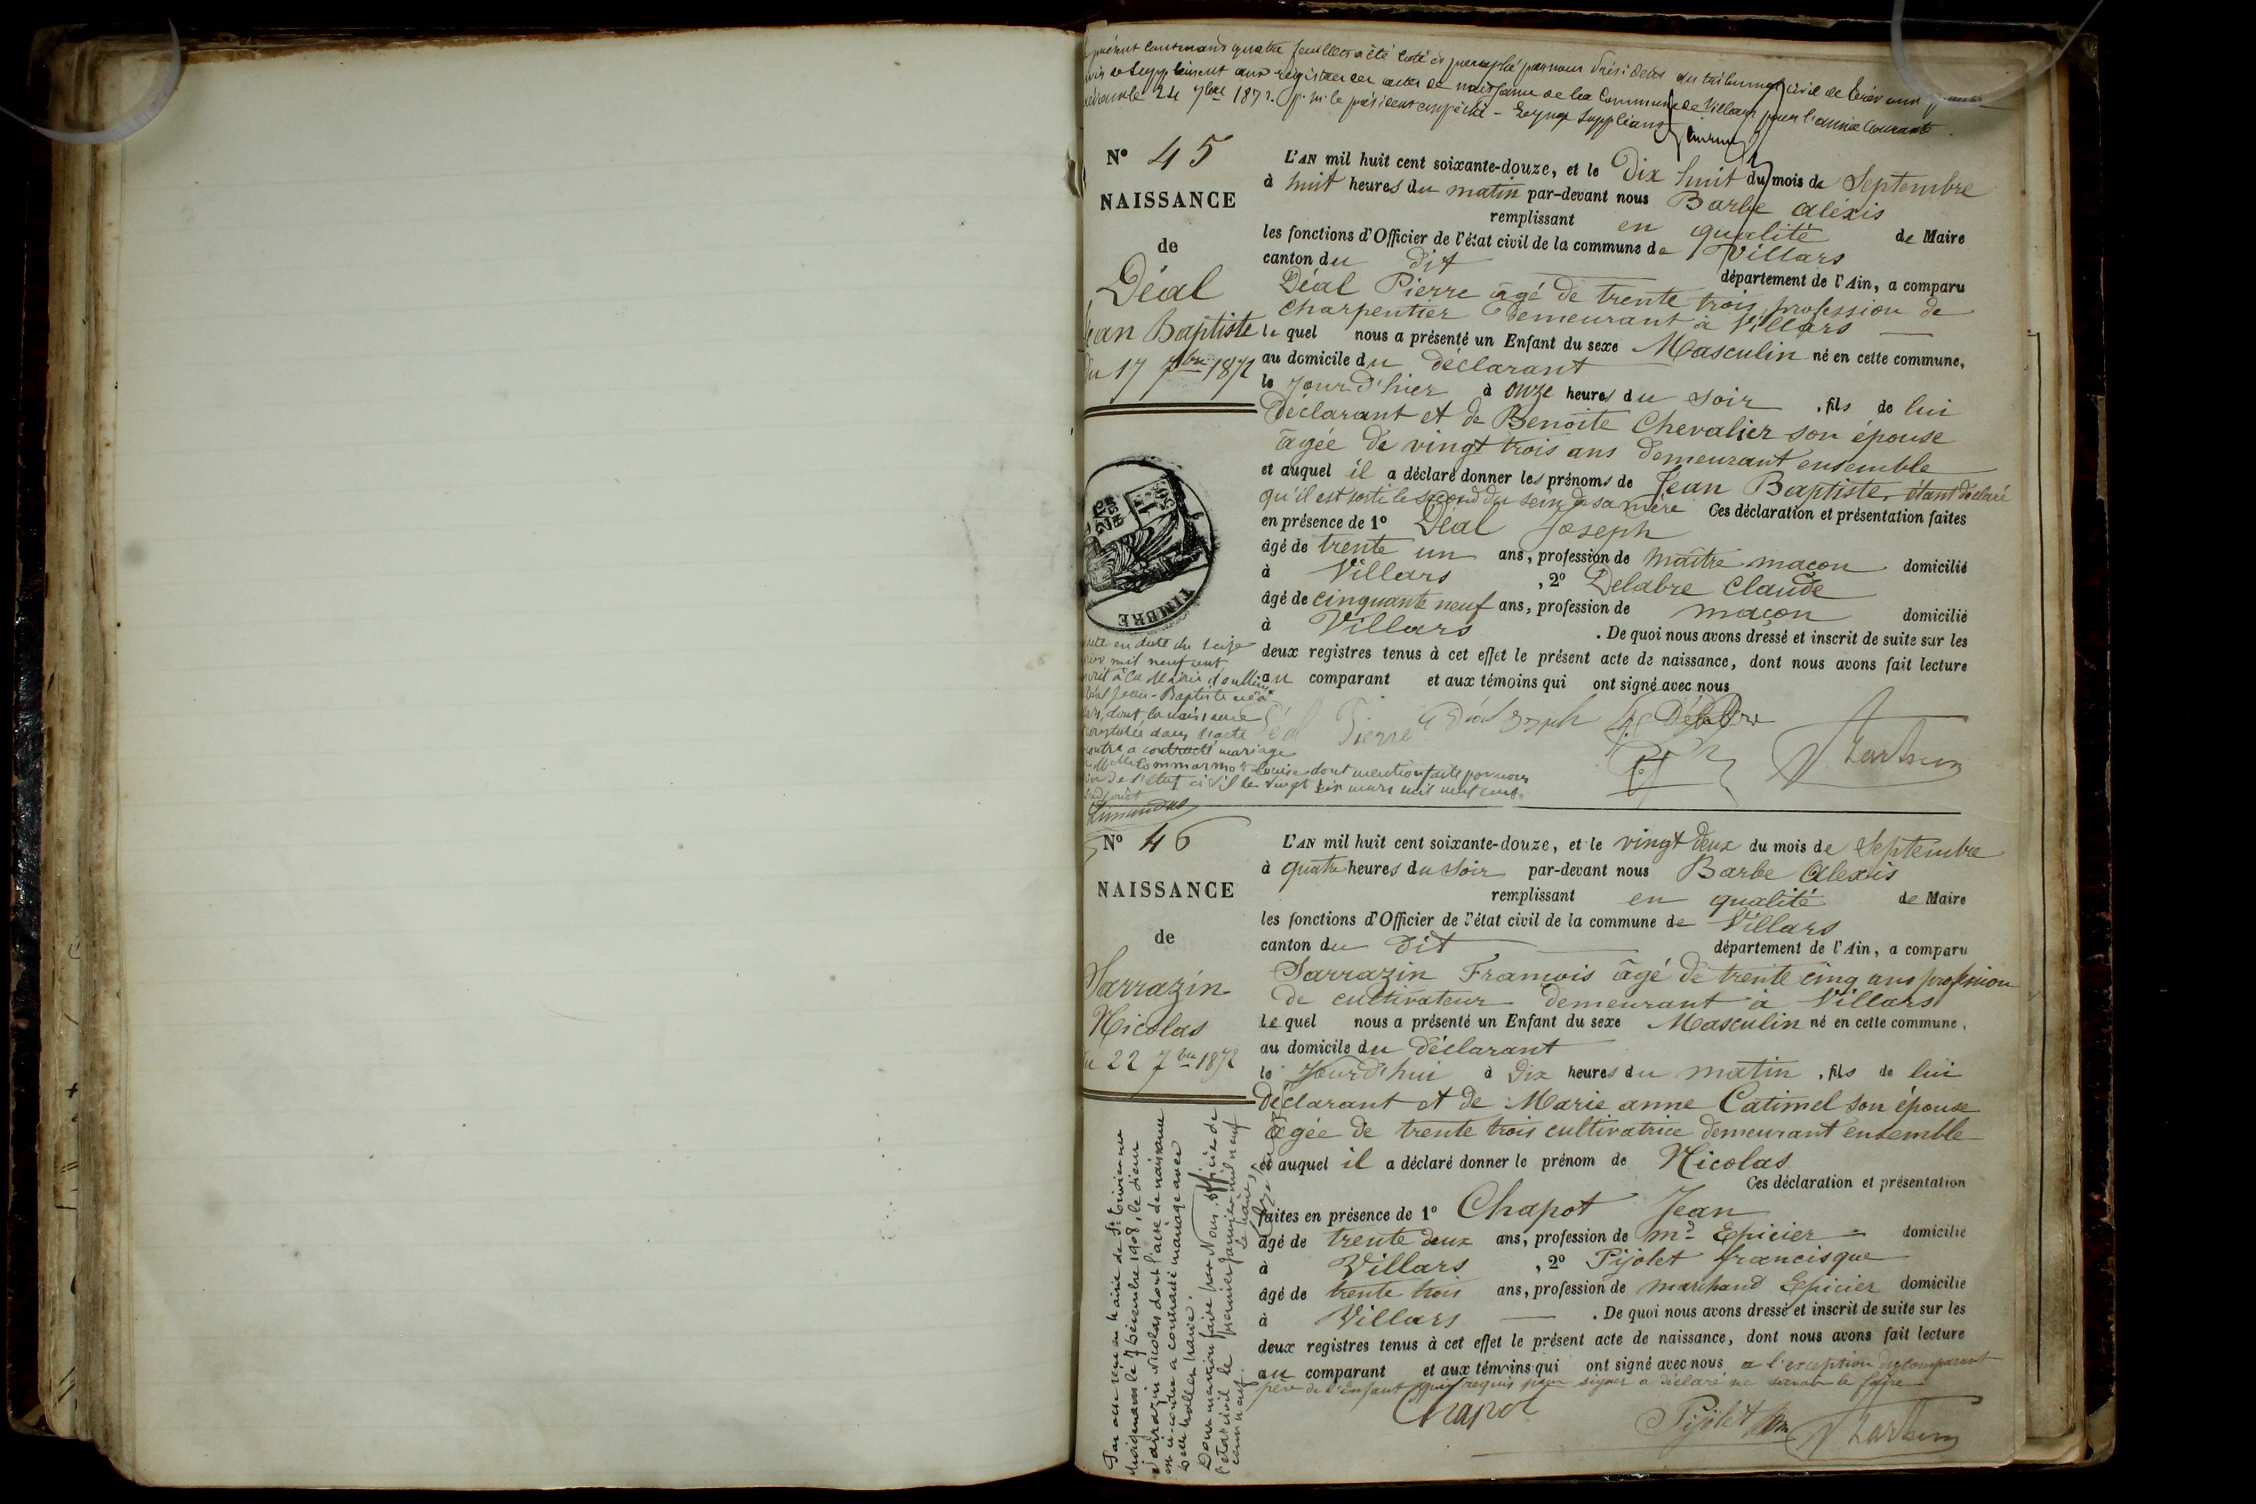 présent contenant quatre feuillets a été coté et paraphé par nous Président du tribunal civil de Trévoux pour
servir de supplément aux registres des actes de naissance de la Commune de Villars pour l'année Courante
Trévoux le 24 7bre 1872. p. m. le président empêché - suppléant
N° 45
NAISSANCE
de
Déal
Jean Baptiste
du 17 7bre 1872
L'AN mil huit cent soixante-douze, et le Dix huit du mois de Septembre
à huit heures du matin par-devant nous Barbe Aléxis
remplissant en qualité de Maire
les fonctions d'Officier de l'état civil de la commune de Villars
canton du dit département de l'Ain, a comparu
Déal Pierre âgé de trente trois profession de
Charpentier demeurant à Villars
le quel nous a présenté un Enfant du sexe Masculin né en cette commune,
au domicile du déclarant
le Jour d'hier à onze heures du soir , fils de lui
Déclarant et de Benoite Chevalier son épouse
âgée de vingt trois ans demeurant ensemble
et auquel il a déclaré donner les prénoms de Jean Baptiste, étant déclaré
qu'il est sorti le second du sein de sa mère Ces déclaration et présentation faites
en présence de 1° Déal Joseph
âgé de trente un ans, profession de maître maçon domicilié
à Villars , 2° Delabre Claude
âgé de cinquante neuf ans, profession de maçon domicilié
à Villars . De quoi nous avons dressé et inscrit de suite sur les
deux registres tenus à cet effet le présent acte de naissance, dont nous avons fait lecture
au comparant et aux témoins qui ont signé avec nous
Déal Pierre Déal Joseph Délabre
A Barbe
TIMBRE
acte en date du seize
mil neuf cent
à la Mairie d'oullins
Déal Jean-Baptiste né à
Villars, dont la naissance
constatée dans l'acte
contre a contracté mariage
Commarmot Louise dont mention faite par nous
de l'état civil le vingt six mars mil neuf cent
N° 46
NAISSANCE
de
Sarrazin
Nicolas
du 22 7bre 1872
L'AN mil huit cent soixante-douze, et le vingt deux du mois de Septembre
à quatre heures du soir par-devant nous Barbe Alexis
remplissant en qualité de Maire
les fonctions d'Officier de l'état civil de la commune de Villars
canton du dit département de l'Ain, a comparu
Sarrazin Francois âgé de trente cinq ans profession
de cultivateur demeurant à Villars
Le quel nous a présenté un Enfant du sexe Masculin né en cette commune,
au domicile du déclarant
le Jourd'hui à Dix heures du matin , fils de lui
Déclarant et de Marie anne Catimel son épouse
agée de trente trois cultivatrice demeurant ensemble
et auquel il a déclaré donner le prénom de Nicolas
Ces déclaration et présentation
faites en présence de 1° Chapot Jean
âgé de trente deux ans, profession de md Epicier domicilié
à Villars , 2° Pijolet francisque
âgé de trente trois ans, profession de marchand Epicier domicilié
à Villars . De quoi nous avons dressé et inscrit de suite sur les
deux registres tenus à cet effet le présent acte de naissance, dont nous avons fait lecture
au comparant et aux témoins qui ont signé avec nous a l'exception du comparant
père de l'enfant qui requis pour signer a déclaré ne savoir le faire
Chapot Pijolet A Barbe
Par acte reçu en mairie de St Trivier sur
Moignans le 7 Décembre 1908, le sieur
Sarrazin Nicolas dont l'acte de naissance
est ci-contre a contracté mariage avec
Dont mention faite par Nous, officier de
l'état civil le premier Janvier mil neuf
cent neuf.
Le Maire,